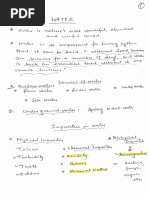 ①
WATER
Water is nature's most wonderful, abundant
and useful compound.
Water is so important for living system
that it can be said, without food human
can survive for a number of days, but water
is such an essential that without it one
cannot survive.
Sources of water
A Surface water:
Rain water
River water
Lake water
Sea water
B. Underground water: Spring & well water
Impurities in water
Physical Impurities
Chemical Impurities
Biological Impurities
Colour
Turbidity
Taste
Odour
Acidity
Gases
Mineral matter
Microorganisms